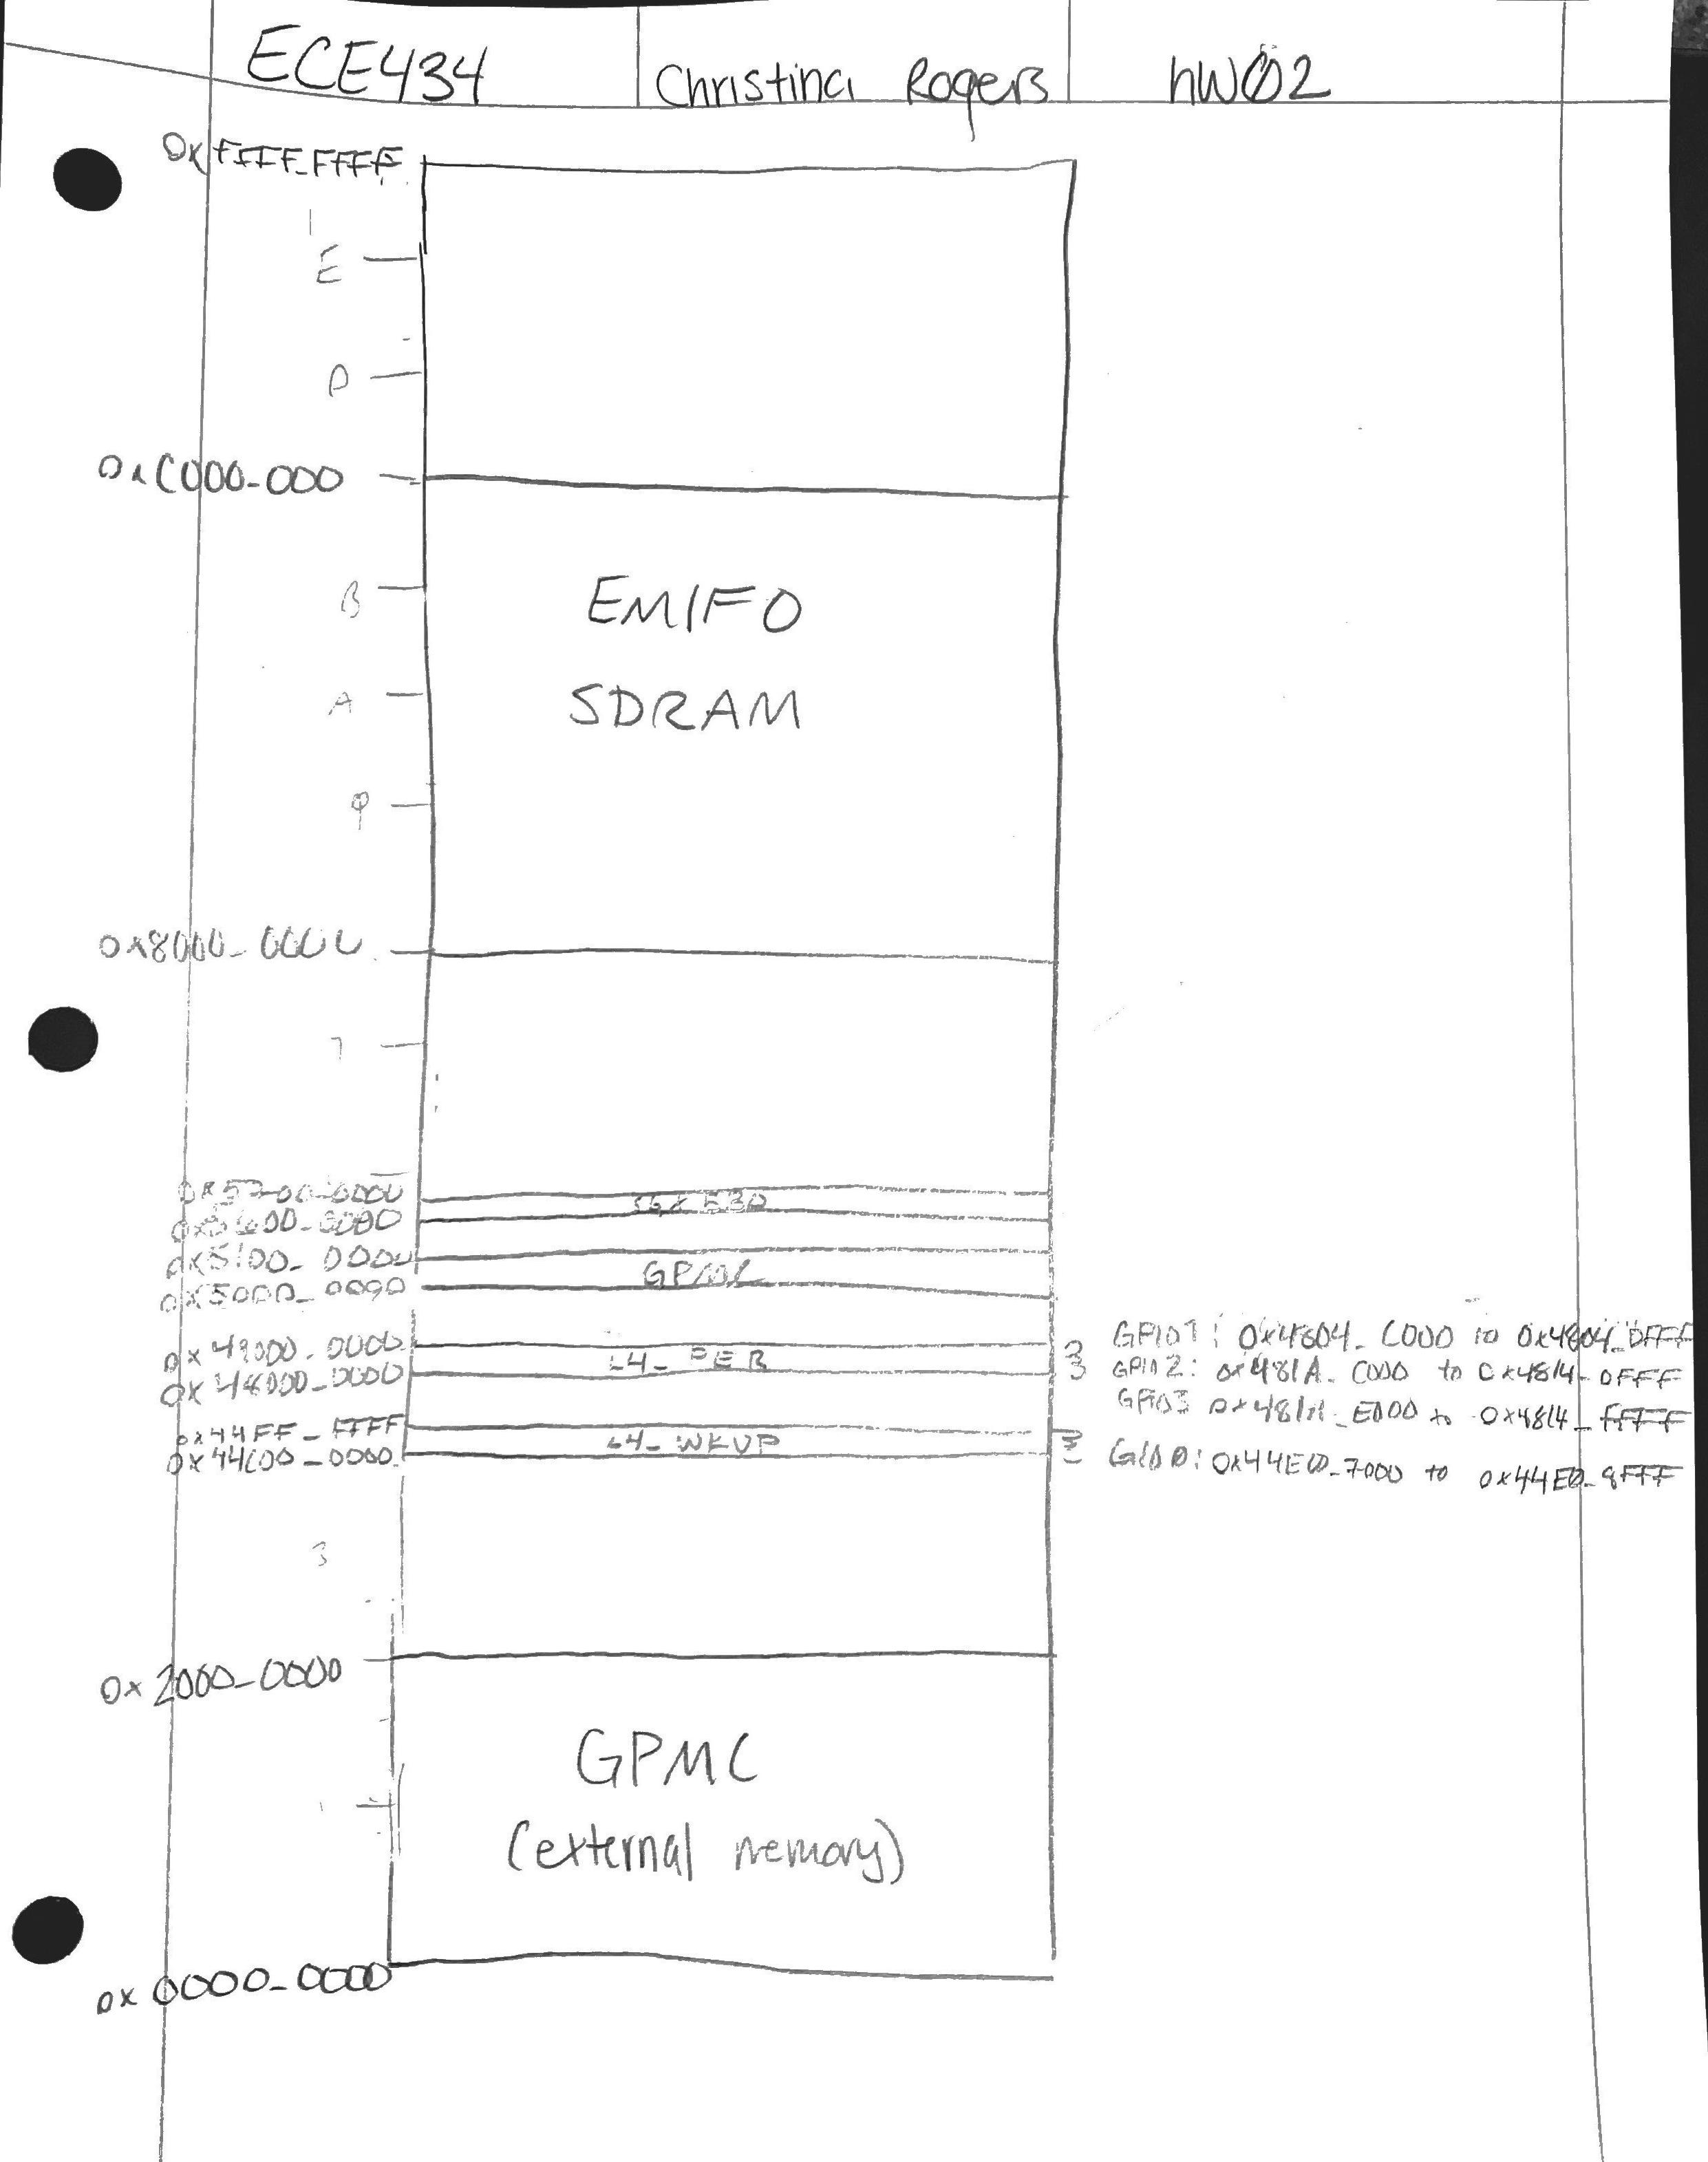 ECE434 Christina Rogers hW02
0xFFFF_FFFF
E
D
0xC000-000
B
EMIFO
A
SDRAM
9
0x8000-0000
7
0x5700-0000
0x5600-0000
0x5100-0000
GPMC
0x5000_0000
0x49000-0000
L4_PER
0x48000-0000
GPIO1: 0x4804_C000 to 0x4804_DFFF
GPIO2: 0x481A_C000 to 0x4814-DFFF
GPIO3 0x481A_E000 to 0x4814_FFFF
0x44FF_FFFF
L4_WKUP
0x44C00-0000
0x44E0_7000 to 0x44E0_8FFF
3
0x2000-0000
GPMC
(external memory)
0x0000-0000